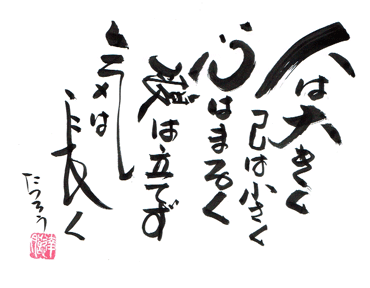 人は大きく
己は小さく
心はまるく
腹は立てず
気は長く
たつろう